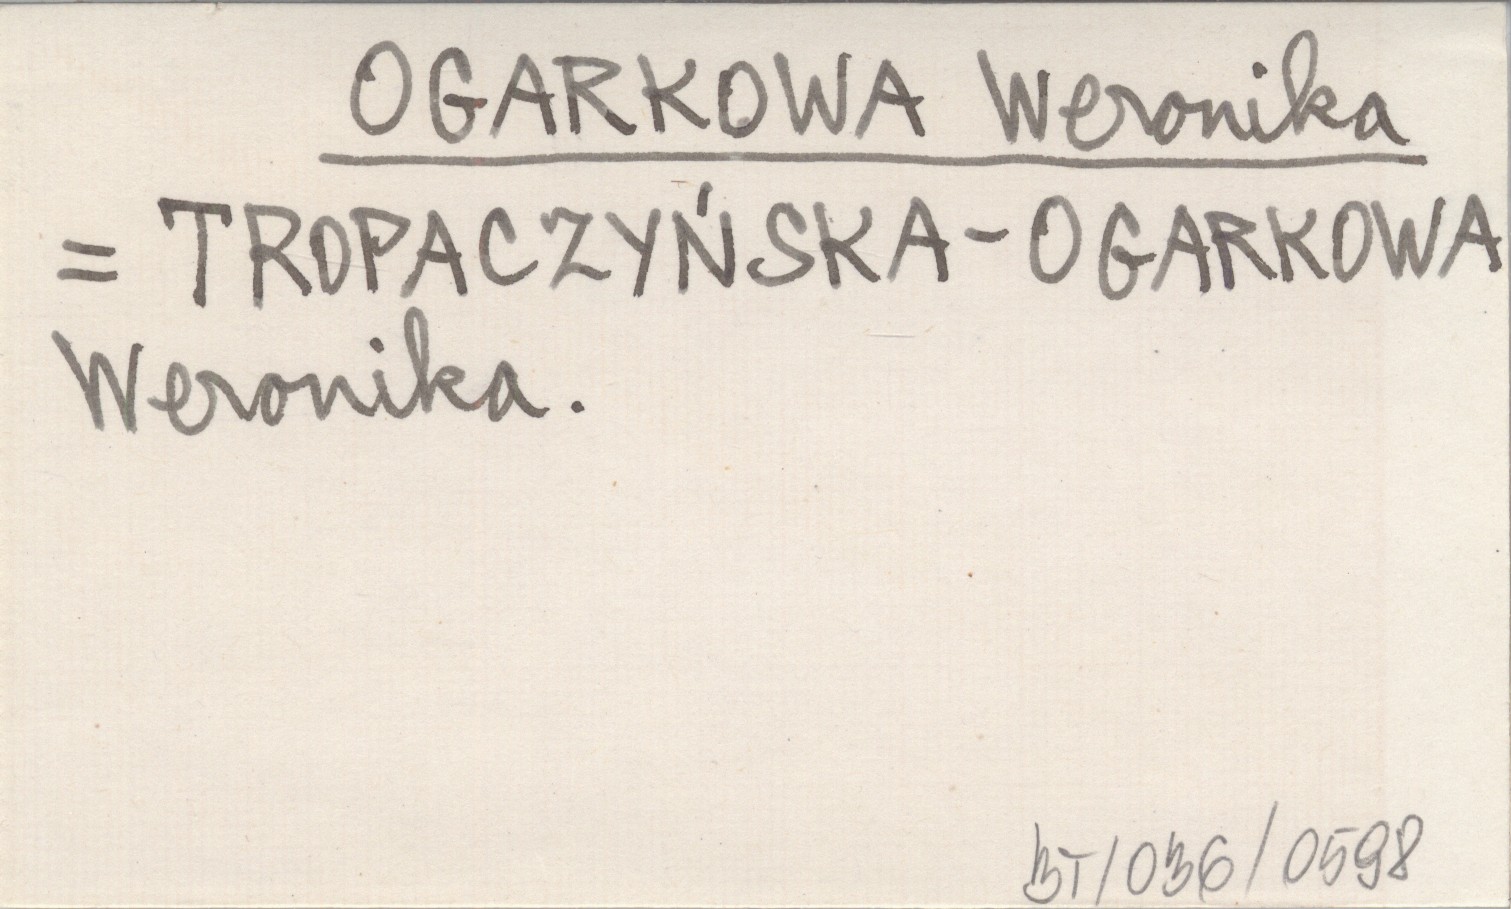 OGARKOWA Weronika
= TROPACZYŃSKA-OGARKOWA
Weronika.
BT/036/0598